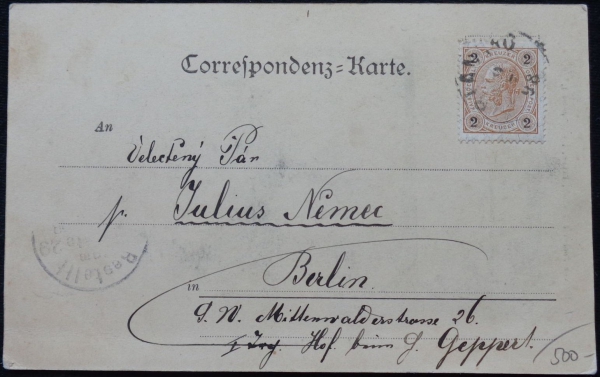 Correspondenz-Karte.
2 2
2 2
An
Velectěný Pán
p. Julius Nemec
in Berlin.
S. W. Mittenwalderstrasse 26.
I Hof beim H. Geppert.
Bestellt
500-